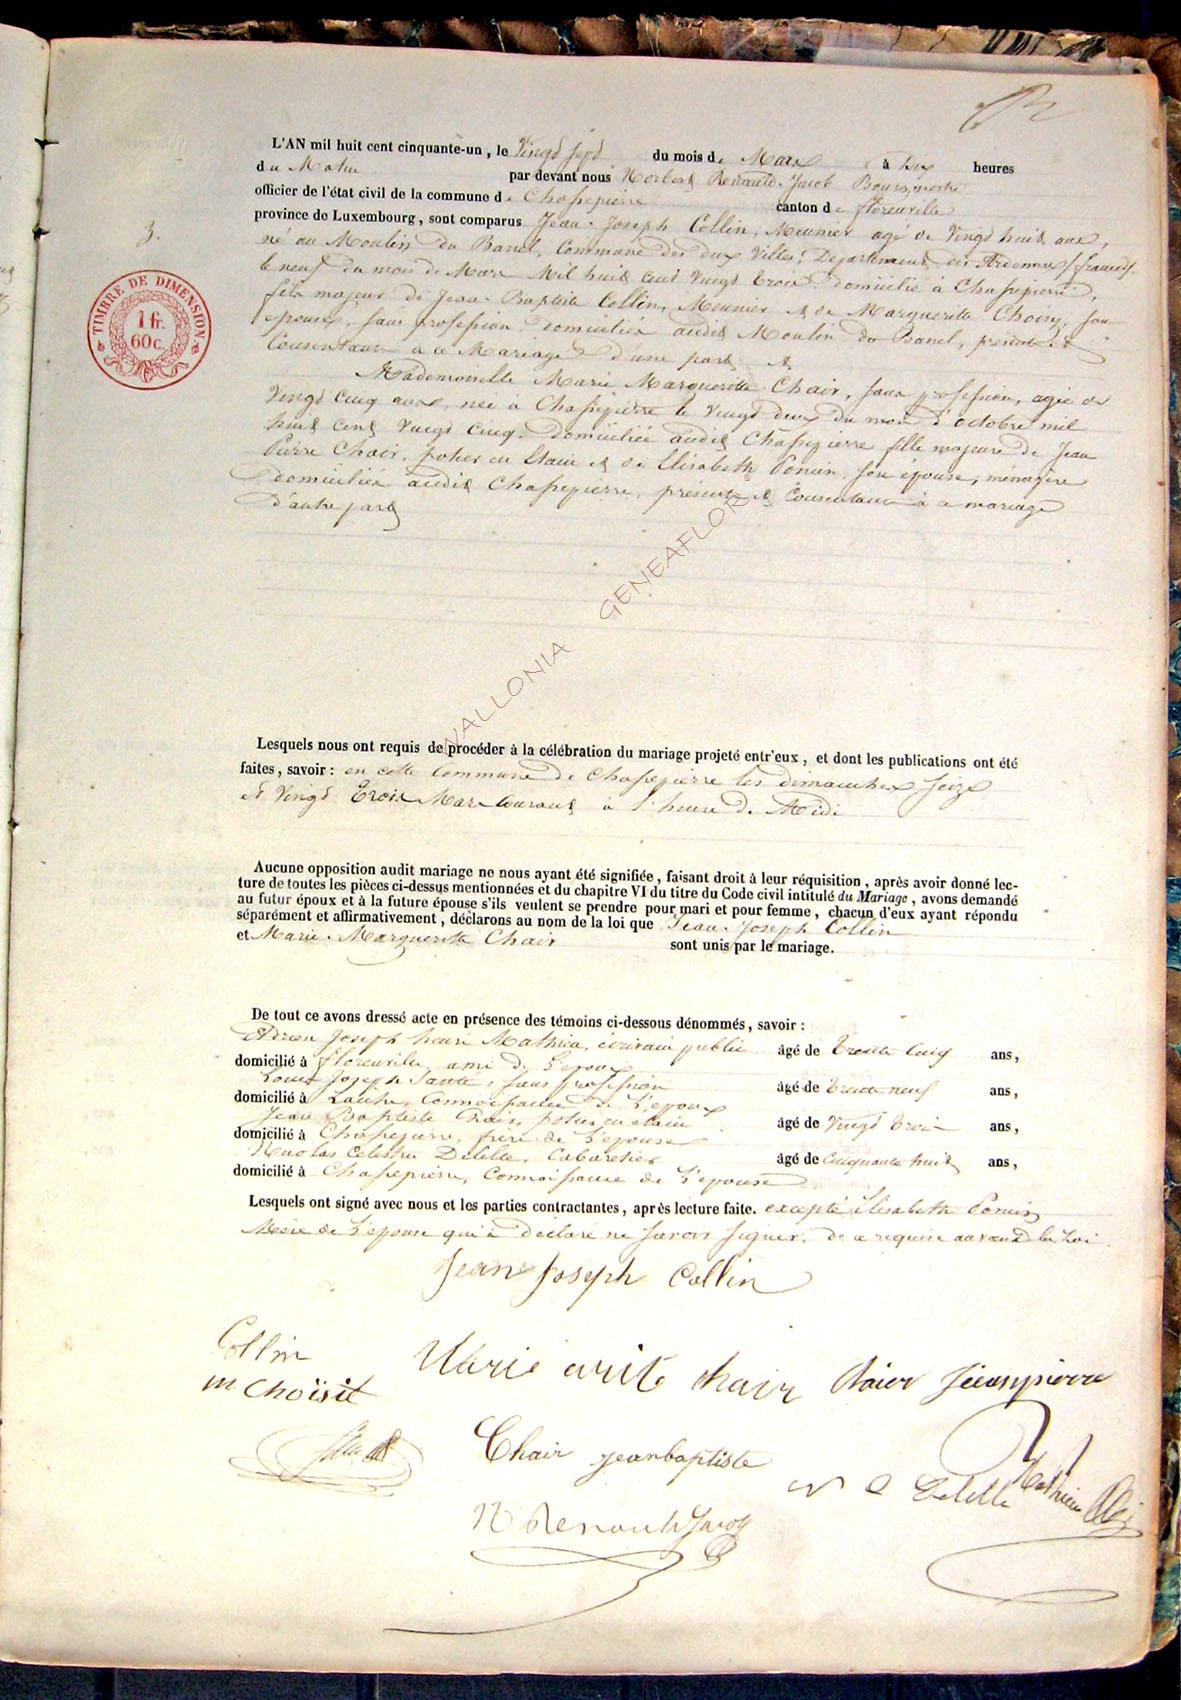 L'AN mil huit cent cinquante-un, le Vingd Sept du mois de Mars à dix heures
du Matin par devant nous Norbert Renauld-Jacob Bourgmestre
officier de l'état civil de la commune de Chassepierre canton de florenville
province de Luxembourg, sont comparus Jean-Joseph Collin, Meunier agé de Vingd huit ans,
3.
né au Moulin du Banel, Commune des deux Villes, Departement des Ardennes / france /.
le neuf du mois de Mars Mil huit cent Vingd Trois. domicilié à Chassepierre,
TIMBRE DE DIMENSION
1 fr.
60 c.
fils majeur de Jean-Baptiste Collin, Meunier & de Marguerite Choisy, son
epouse, sans profession, domiciliés audit Moulin du Banel, présents &
Consentant à ce Mariage d'une part &
Mademoiselle Marie Marguerite Chair, sans profession, agée de
Vingd Cinq ans, née à Chassepierre le Vingd deux du mois d'octobre mil
huit cent Vingd Cinq. domiciliée audit Chassepierre fille majeure de Jean
Pierre Chair, potier en Etain & de Elisabeth Poncin, son épouse, ménagère
domiciliés audit Chassepierre, présents & Consentant à ce mariage
d'autre part
WALLONIA GENEAFLOR ©
Lesquels nous ont requis de procéder à la célébration du mariage projeté entr'eux, et dont les publications ont été
faites, savoir: en cette Commune de Chassepierre les dimanches Seize
et Vingd Trois Mars Courant à l'heure de Midi
Aucune opposition audit mariage ne nous ayant été signifiée, faisant droit à leur réquisition, après avoir donné lec-
ture de toutes les pièces ci-dessus mentionnées et du chapitre VI du titre du Code civil intitulé du Mariage, avons demandé
au futur époux et à la future épouse s'ils veulent se prendre pour mari et pour femme, chacun d'eux ayant répondu
séparément et affirmativement, déclarons au nom de la loi que Jean-Joseph Collin
et Marie-Marguerite Chair sont unis par le mariage.
De tout ce avons dressé acte en présence des témoins ci-dessous dénommés, savoir:
Joseph henri Mathieu, écrivain public âgé de Trente Cinq ans,
domicilié à florenville, ami de l'epoux
Louis Joseph, sans profession âgé de Trente neuf ans,
domicilié à Connoissance de l'epoux
Jean Baptiste Chair, potier en etain âgé de Vingd Trois ans,
domicilié à Chassepierre, frère de l'epouse
Nicolas Celestin Delille, Cabaretier âgé de Cinquante huit ans,
domicilié à Chassepierre, Connoissance de l'epouse
Lesquels ont signé avec nous et les parties contractantes, après lecture faite. excepté Elisabeth Poncin
Mère de l'epouse qui à déclaré ne savoir signer, de ce requise suivant la Loi.
Jean Joseph Collin
Collin
m Choisit
Marie arite chair Chair Jeanpierre
Chair jeanbaptiste
N C Delille Mathieu
N Renauld Jacob